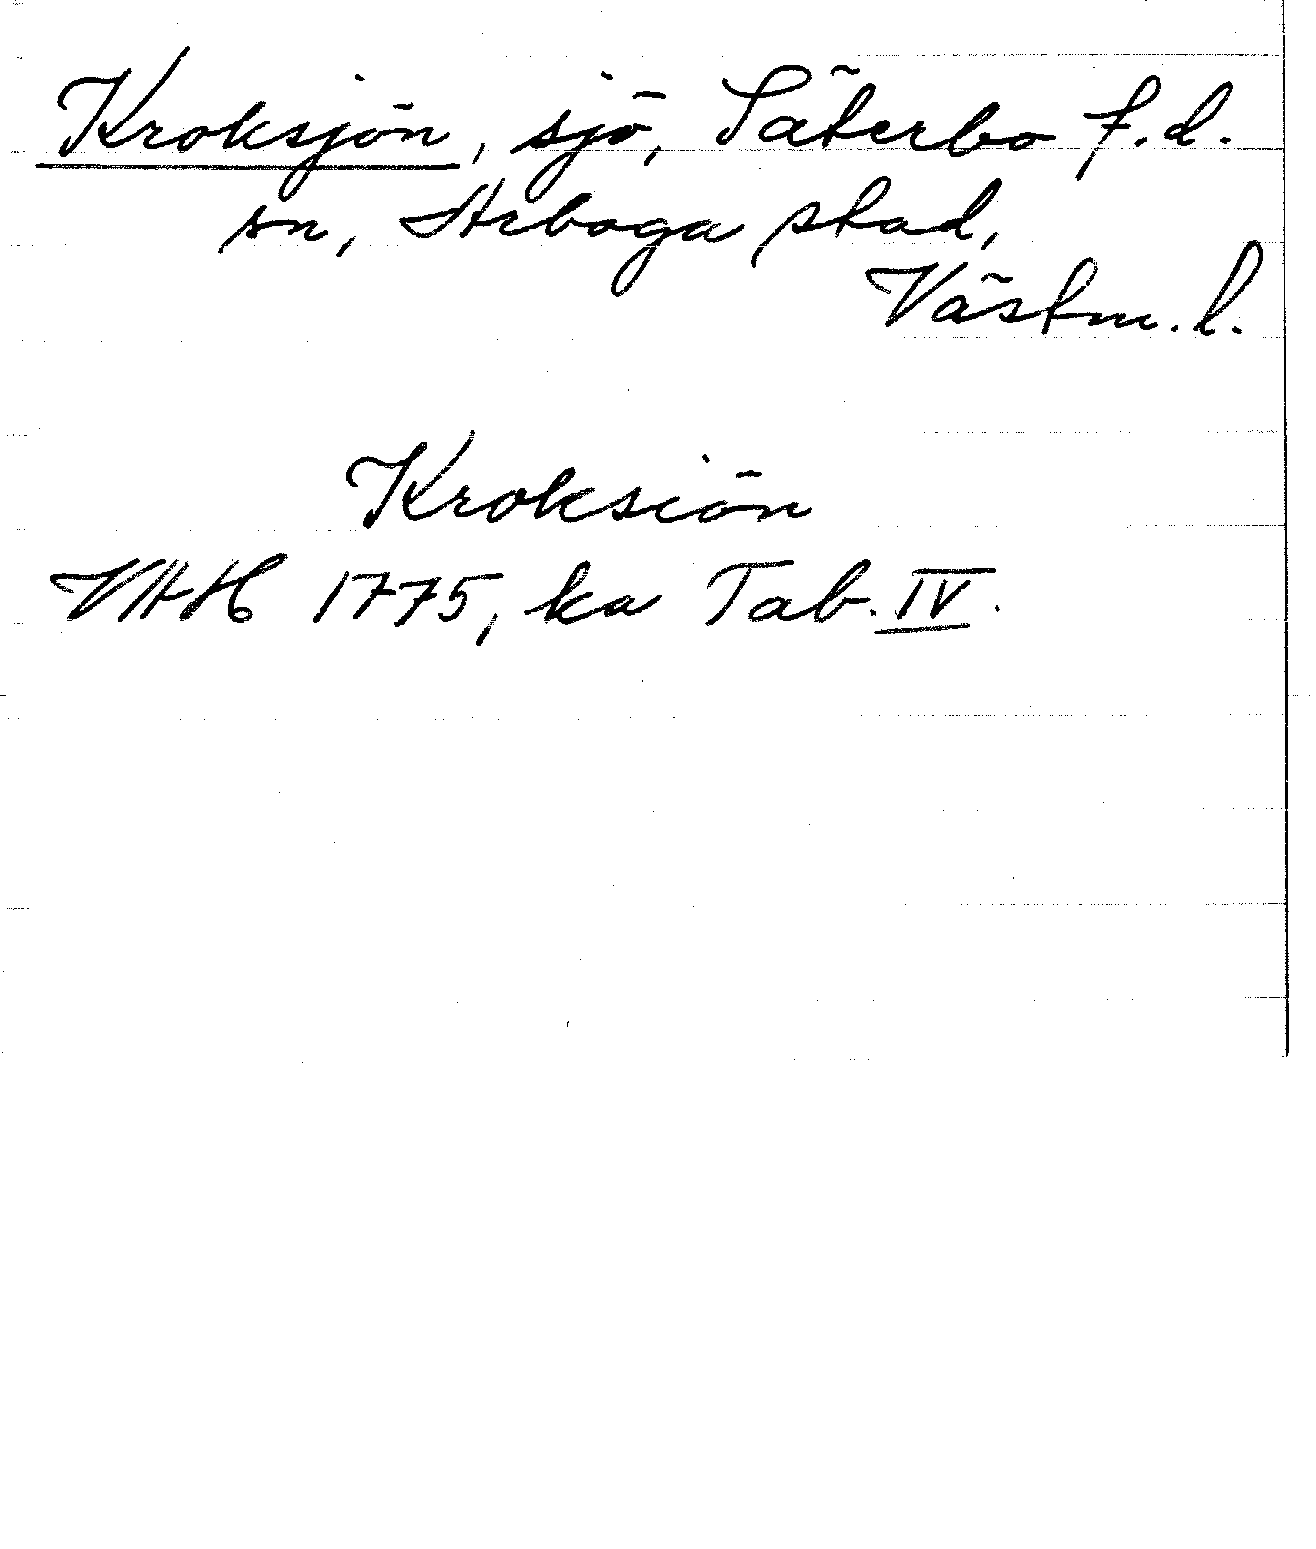 Kroksjön, sjö, Säterbo f.d.
sn, Arboga stad,
Västm. l.
Kroksiön
VAH 1775, ka Tab. IV.